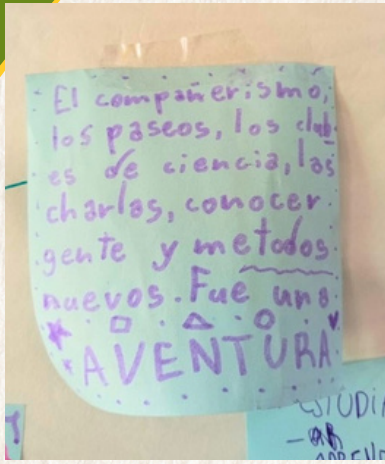 El compañerismo,
los paseos, los club
es de ciencia, las
charlas, conocer
gente y metodos
nuevos. Fue una
AVENTURA
ESTUDIA